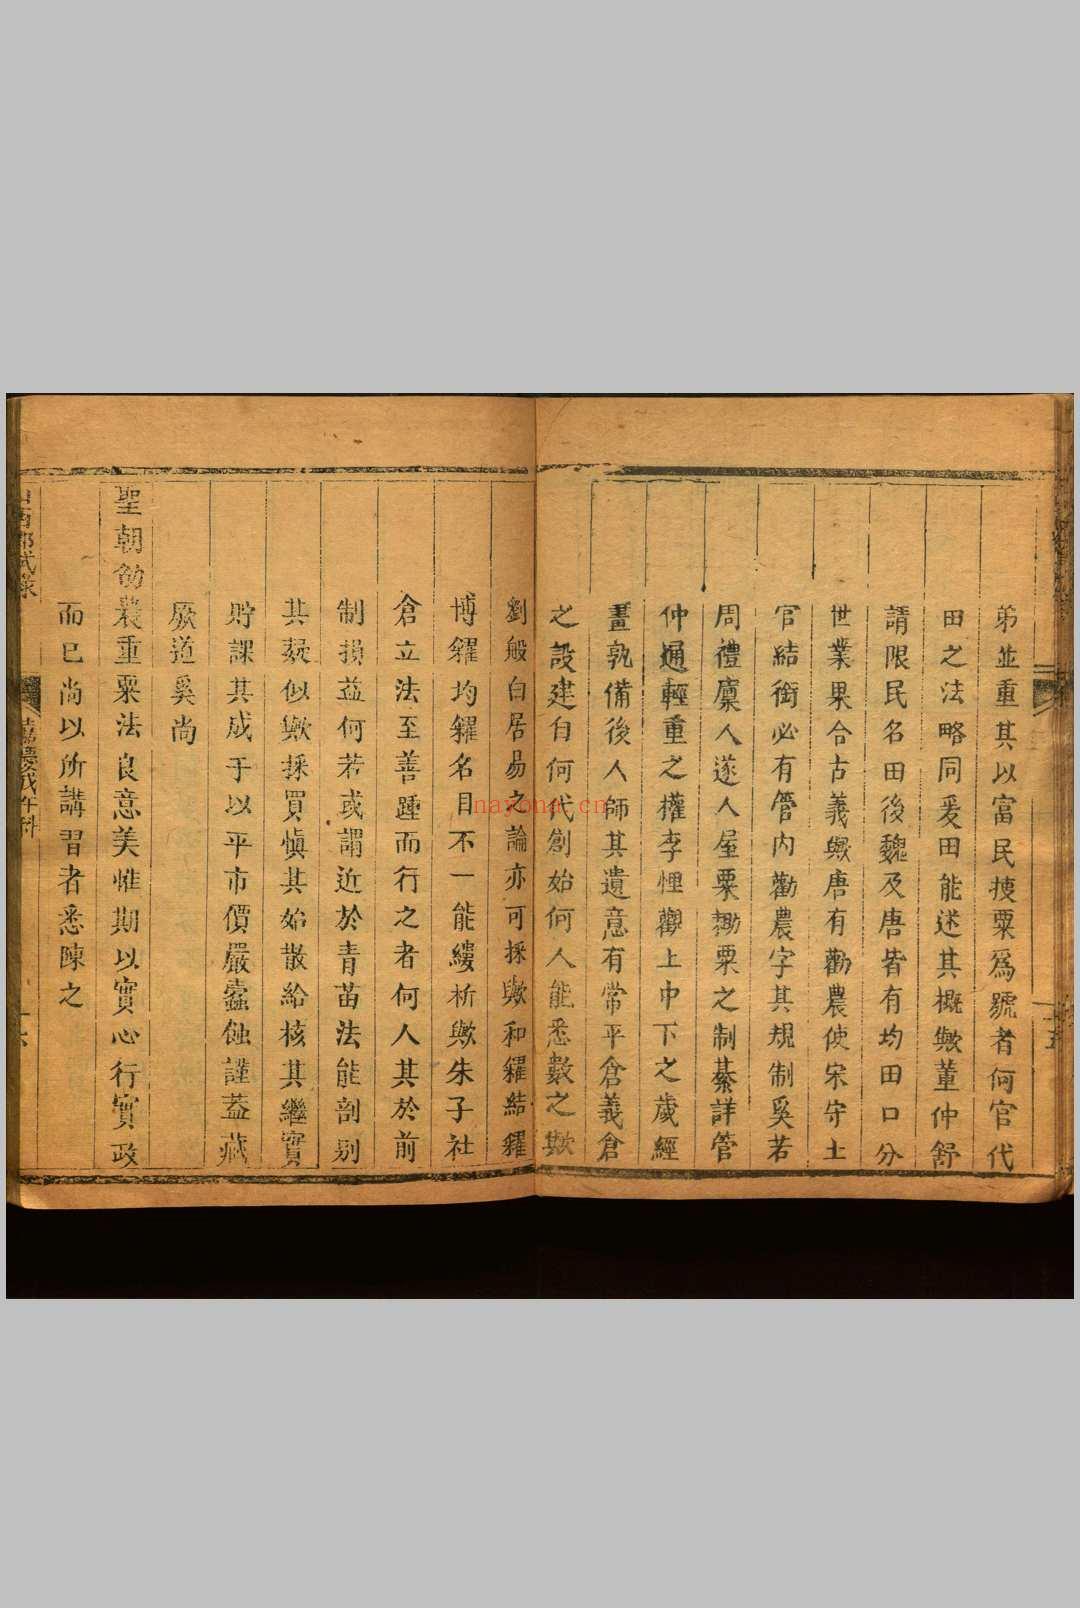 弟並重其以富民捜粟爲號者何官代
田之法略同爰田能述其概歟董仲舒
請限民名田後魏及唐皆有均田口分
世業果合古義歟唐有勸農使宋守土
官結銜必有管內勸農字其規制奚若
周禮廩人遂人屋粟耡粟之制綦詳管
仲通輕重之權李悝觀上中下之歲經
畫孰備後人師其遺意有常平倉義倉
之設建自何代創始何人能悉數之歟
劉般白居易之論亦可採歟和糴結糴
博糴均糴名目不一能縷析歟朱子社
倉立法至善踵而行之者何人其於前
制損益何若或謂近於青苗法能剖別
其疑似歟採買愼其始散給核其繼實
貯課其成于以平市價嚴蠹蝕謹葢藏
厥道奚尚
聖朝劭農重粟法良意美惟期以實心行實政
而已尚以所講習者悉陳之
山西鄉試錄
嘉慶戊午科
nayona.cn